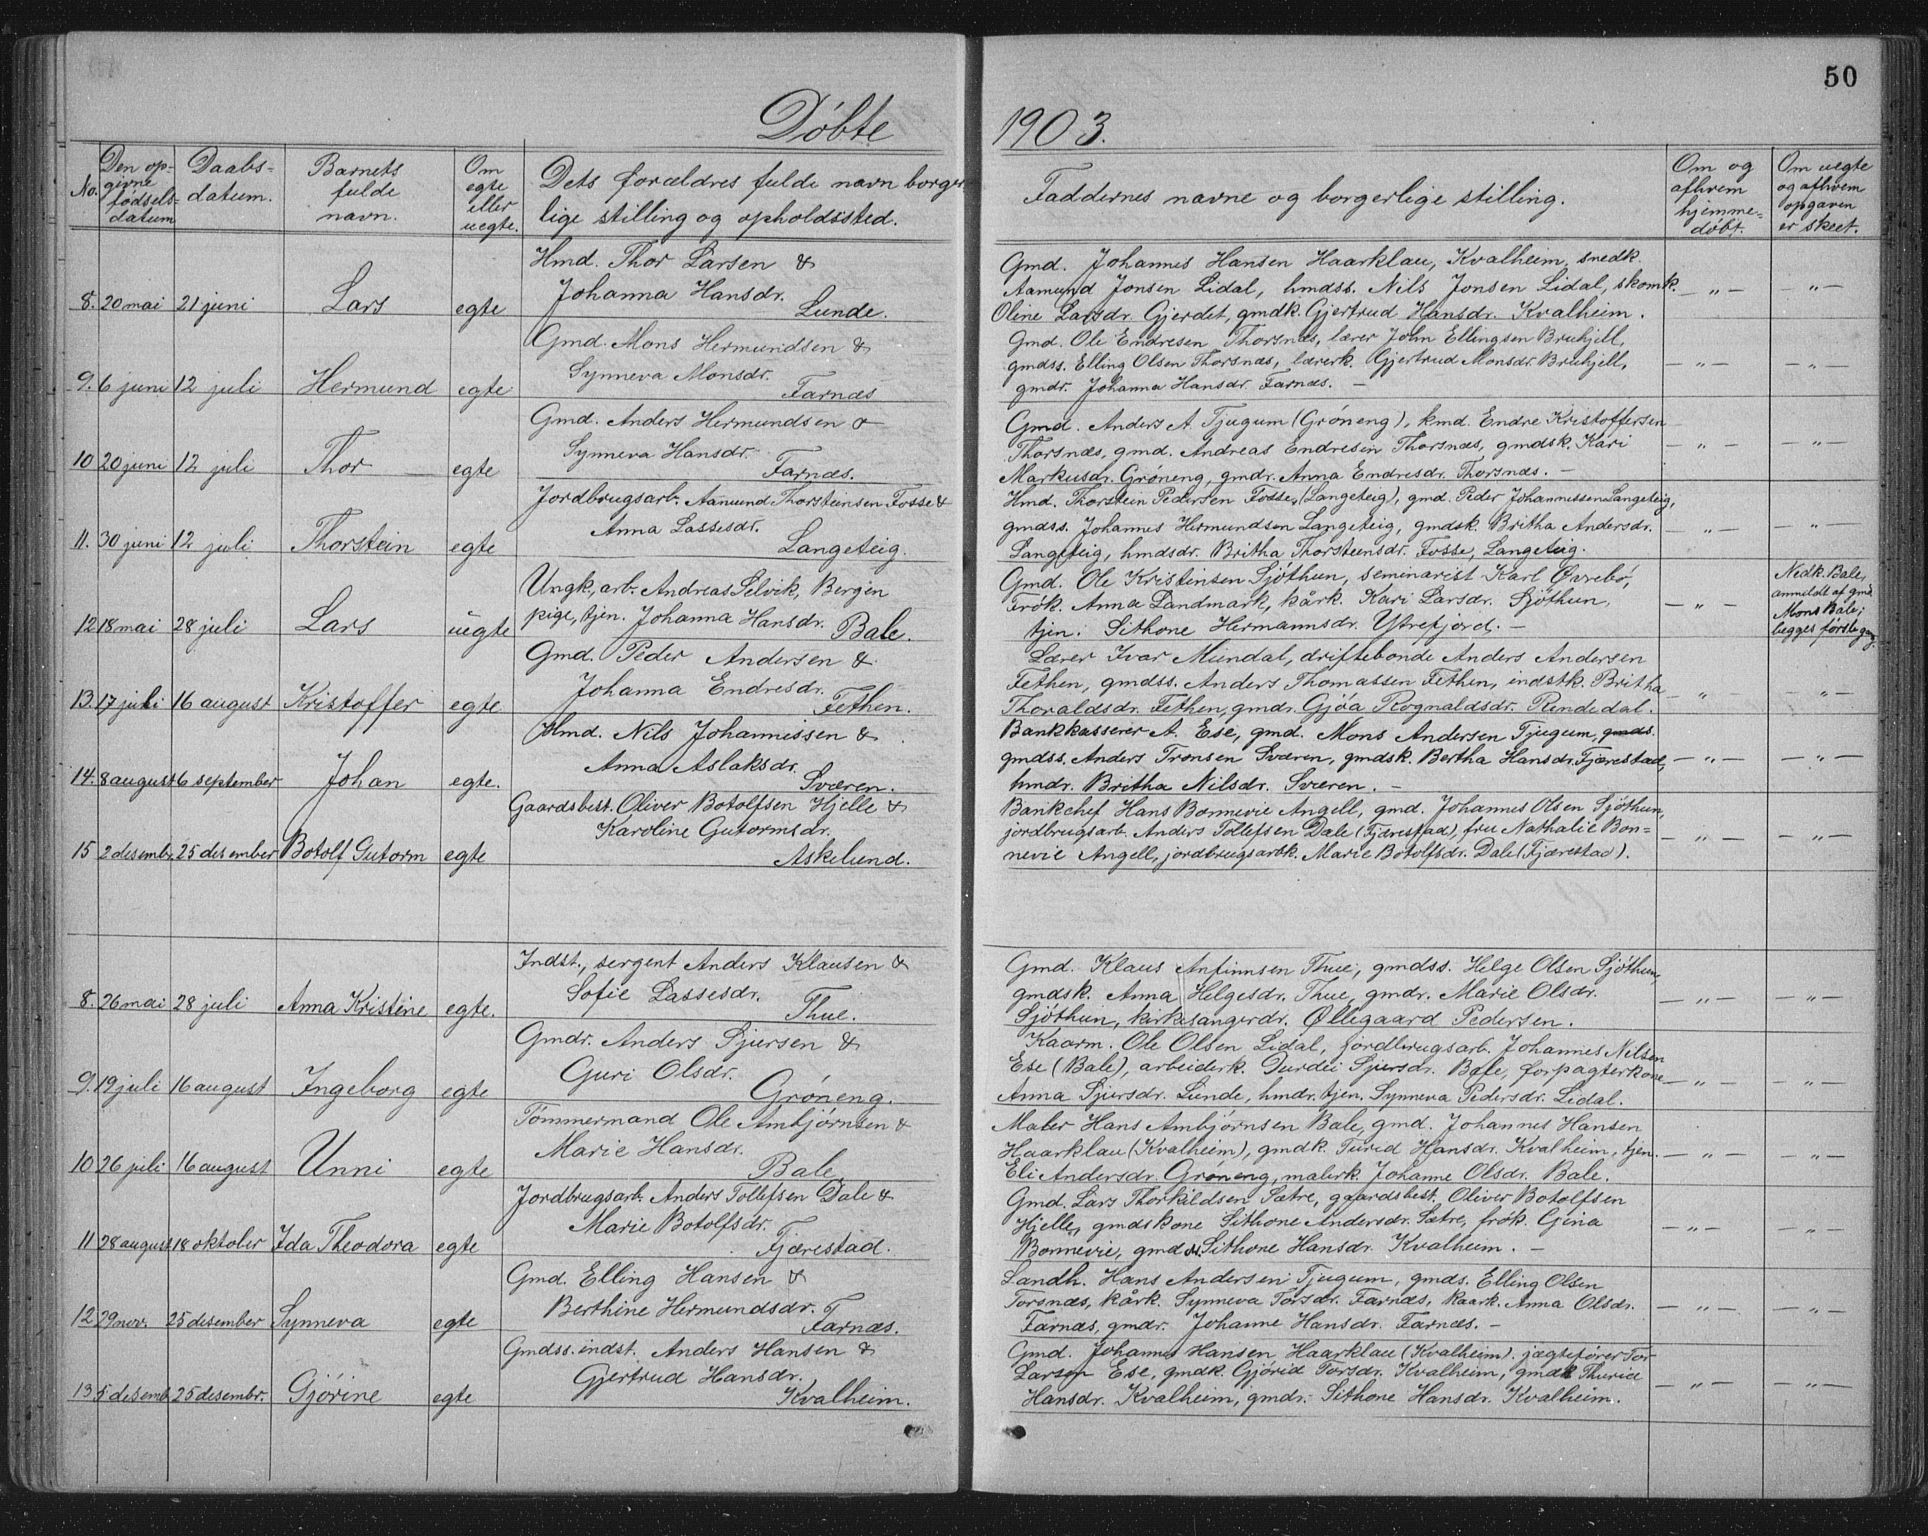 50
Döbte 1903.
No.
Den op-
givne
födsels-
datum
Daabs-
datum.
Barnets
fulde
navn.
Om
egte
eller
uegte.
Dets forældres fulde navn borger-
lige stilling og opholdssted.
Faddernes navne og borgerlige stilling.
Om og
afhvem
hjemme-
döbt.
Om uegte
og afhvem
opgaven
er skeet.
Hmd. Thor Larsen &
Johanna Hansdr.
8. 20 mai 21 juni Lars egte Lunde.
Gmd. Johannes Hansen Haarklau, Kvalheim, snedk.
Aamund Jonsen Lidal, hmdss. Nils Jonsen Lidal, skomk. — „ — — „ —
Oline Larsdr. Gjerdet, gmdk. Gjertrud Hansdr. Kvalheim.
Gmd. Mons Hermundsen &
Synneva Monsdr.
9. 6 juni 12 juli Hermund egte Farnæs
Gmd. Ole Endresen Thorsnæs, lærer John Ellingsen Bruhjell,
gmdss. Elling Olsen Thorsnæs, lærerk. Gjertrud Monsdr. Bruhjell, — „ — — „ —
gmdr. Johanna Hansdr. Farnæs. —
Gmd. Anders Hermundsen &
Synneva Hansdr.
10 20 juni 12 juli Thor egte Farnæs.
Gmd. Anders A. Tjugum (Gröneng), kmd. Endre Kristoffersen
Thorsnæs, gmd. Andreas Endresen Thorsnæs, gmdsk. Kari — „ — — „ —
Markusdr. Gröneng, gmdr. Anna Endresdr. Thorsnæs. —
Jordbrugsarb. Aamund Thorsteinsen Fosse &
Anna Lassesdr.
11. 30 juni 12 juli Thorstein egte Langeteig.
Hmd. Thorstein Pedersen Fosse, (Langeteig), gmd. Peder Johannessen Langeteig,
gmdss. Johannes Hermundsen Langeteig, gmdsk. Britha Andersdr. — „ — — „ —
Langeteig, hmdsdr. Britha Thorsteinsdr. Fosse, Langeteig.
Ungk., arb. Andreas Selvik, Bergen
pige, tjen. Johanna Hansdr.
12 18 mai 28 juli Lars uegte Bale.
Gmd. Ole Kristensen Sjöthun, seminarist Karl Øvrebö,
Frök. Anna Landmark, kårk. Kari Larsdr. Sjöthun, — „ —
tjen. Sithone Hermannsdr. Ytrefjord. —
Nedk. Bale,
anmeldt af gmd.
Mons Bale;
begges förste gang.
Gmd. Peder Andersen &
Johanna Endresdr.
13. 17 juli 16 august Kristoffer egte Fethen.
Lærer Ivar Mundal, driftebonde Anders Andersen
Fethen, gmdss. Anders Thomassen Fethen, indstk. Britha „ — „ —
Thoraldsdr. Fethen, gmdr. Gjöa Rognaldsdr. Rendedal.
Hmd. Nils Johannessen &
Anna Aslaksdr.
14. 8 august 6 september Johan egte. Sværen.
Bankkasserer A. Ese, gmd. Mons Andersen Tjugum, gmds.
gmdss. Anders Tronsen Sværen, gmdsk. Bertha Hansdr. Fjærestad, — „ — — „ —
hmdr. Britha Nilsdr. Sværen. —
Gaardsbest. Oliver Botolfsen Hjelle &
Karoline Gutormsdr.
15 2 desembr. 25 desember Botolf Gutorm egte Askelund.
Bankchef Hans Bonnevie Angell, gmd. Johannes Olsen Sjöthun,
jordbrugsarb. Anders Tollefsen Dale (Fjærestad), fru Nathalie Bon- — „ — — „ —
nevie Angell, jordbrugsarbk. Marie Botolfsdr. Dale (Fjærestad).
Indst., sergent Anders Klausen &
Sofie Lassesdr.
8. 26 mai 28 juli Anna Kristine egte. Thue.
Gmd. Klaus Anfinnsen Thue, gmdss. Helge Olsen Sjöthun,
gmdsk. Anna Helgesdr. Thue, gmdr. Marie Olsdr. — „ — — „ —
Sjöthun, kirkesangerdr. Øllegaard Pedersen.
Gmdr. Anders Sjursen &
Guri Olsdr.
9. 19 juli 16 august Ingeborg egte Gröneng.
Kaarm. Ole Olsen Lidal, jordbrugsarb. Johannes Nilsen
Ese (Bale), arbeiderk. Durdei Sjursdr. Bale, forpagterkone — „ — — „ —
Anna Sjursdr. Lunde, hmdr. tjen. Synneva Pedersdr. Lidal.
Tömmermand Ole Ambjörnsen &
Marie Hansdr.
10 26 juli 16 august Unni egte Bale
Maler Hans Ambjörnsen Bale, gmd. Johannes Hansen
Haarklau (Kvalheim), gmdk. Turid Hansdr. Kvalheim, tjen. — „ — — „ —
Eli Andersdr. Gröneng, malerk. Johanne Olsdr. Bale.
Jordbrugsarb. Anders Tollefsen Dale &
Marie Botolfsdr.
11 28 august 18 oktober Ida Theodora egte Fjærestad.
Gmd. Lars Thorkildsen Sætre, gaardsbest. Oliver Botolfsen
Hjelle, gmdskone Sithone Andersdr. Sætre, frök. Gina — „ — — „ —
Bonnevie, gmd Sithone Hansdr. Kvalheim. —
Gmd. Elling Hansen &
Berthine Hermundsdr.
12 29 nov. 25 desember Synneva egte Farnæs.
Landh. Hans Andersen Tjugum, gmds. Elling Olsen
Torsnæs, kårk. Synneva Torsdr. Farnæs, kaark. Anna Olsdr. — „ — — „ —
Farnæs, gmdr. Johanne Hansdr. Farnæs. —
Gmdss. indst. Anders Hansen &
Gjertrud Hansdr.
13. 5 desemb. 25 desembr. Gjörine egte Kvalheim.
Gmd. Johannes Hansen Haarklau (Kvalheim), jægtefører Tor
Larsen Ese, gmdk. Gjörid Torsdr. Kvalheim, gmdk Thurid — „ — — „ —
Hansdr. Kvalheim, gmdr. Sithone Hansdr. Kvalheim.